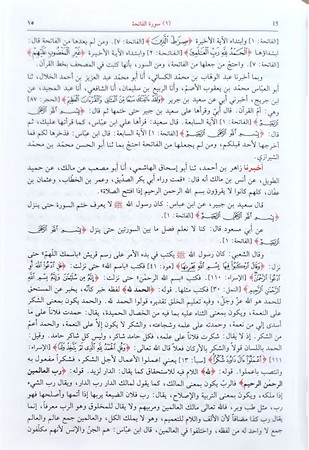 ١٥ (١) سورة الفاتحة ١٦
[الفاتحة: ١] وابتداء الآية الأخيرة ﴿صِرَاطَ الَّذِينَ﴾ [الفاتحة: ٧]. ومن لم يعدها من الفاتحة قال:
ابتداؤها ﴿الْحَمْدُ لِلَّهِ رَبِّ الْعَالَمِينَ﴾ [الفاتحة: ٢] وابتداء الآية الأخيرة ﴿غَيْرِ الْمَغْضُوبِ عَلَيْهِمْ﴾
[الفاتحة: ٧]. واحتج من جعلها من الفاتحة، ومن السور، بأنها كتبت في المصحف بخط القرآن.
وبما أخبرنا عبد الوهاب بن محمد الكسائي، أنا أبو محمد عبد العزيز بن أحمد الخلال، ثنا
أبو العباس محمد بن يعقوب الأصم، أنا الربيع بن سليمان، أنا الشافعي، أنا عبد المجيد، عن
ابن جريج، أخبرني أبي عن سعيد بن جبير ﴿وَلَقَدْ آتَيْنَاكَ سَبْعًا مِنَ الْمَثَانِي وَالْقُرْآنَ الْعَظِيمَ﴾ [الحجر: ٨٧]
هي: أم القرآن. قال أبي: وقرأها علي سعيد بن جبير حتى ختمها ثم قال: ﴿بِسْمِ اللَّهِ الرَّحْمَٰنِ
الرَّحِيمِ﴾ [الفاتحة: ١] الآية السابعة. قال سعيد: قرأها علي ابن عباس، كما قرأتها عليك، ثم
قال: ﴿بِسْمِ اللَّهِ الرَّحْمَٰنِ الرَّحِيمِ﴾ [الفاتحة: ١] الآية السابعة. قال ابن عباس: فذخرها لكم فما
أخرجها لأحد قبلكم، ومن لم يجعلها من الفاتحة احتج بما ثنا أبو الحسن محمد بن محمد
الشيرازي.
أخبرنا زاهر بن أحمد، ثنا أبو إسحاق الهاشمي، أنا أبو مصعب عن مالك، عن حميد
الطويل، عن أنس بن مالك أنه قال: «قمت وراء أبي بكر الصديق، وعمر بن الخطاب، وعثمان بن
عفان، كلهم كانوا لا يقرؤون بسم الله الرحمن الرحيم إذا افتتح الصلاة».
قال سعيد بن جبير، عن ابن عباس: كان رسول الله ﷺ لا يعرف ختم السورة حتى ينزل
﴿بِسْمِ اللَّهِ الرَّحْمَٰنِ الرَّحِيمِ﴾ [الفاتحة: ١].
عن أبي مسعود قال: كنا لا نعلم فصل ما بين السورتين حتى ينزل ﴿بِسْمِ اللَّهِ الرَّحْمَٰنِ الرَّحِيمِ﴾
[الفاتحة: ١].
وقال الشعبي: كان رسول الله ﷺ يكتب في بدء الأمر على رسم قريش «باسمك اللهم» حتى
نزل: ﴿وَقَالَ ارْكَبُوا فِيهَا بِسْمِ اللَّهِ مَجْرَاهَا﴾ [هود: ٤١] فكتب «باسم الله» حتى نزلت: ﴿قُلِ ادْعُوا اللَّهَ أَوِ
ادْعُوا الرَّحْمَٰنَ﴾ [الإسراء: ١١٠]. فكتب «بسم الله الرحمن» حتى نزلت: ﴿إِنَّهُ مِنْ سُلَيْمَانَ وَإِنَّهُ بِسْمِ اللَّهِ
الرَّحْمَٰنِ الرَّحِيمِ﴾ [النمل: ٣٠] فكتب مثلها. قوله: ﴿الحمد لله﴾ لفظه خبر كأنه، يخبر عن المستحق
للحمد هو الله عز وجل، وفيه تعليم الخلق تقديره، قولوا الحمد لله. والحمد يكون بمعنى الشكر
على النعمة، ويكون بمعنى الثناء عليه بما فيه من الخصال الحميدة، يقال: حمدت فلاناً على ما
أسدى إلي من نعمة، وحمدته على علمه وشجاعته، والشكر لا يكون إلا على النعمة، والحمد أعم
من الشكر. إذ لا يقال: شكرت فلاناً على علمه، فكل حامد شاكر، وليس كل شاكر حامد. وقيل:
الحمد باللسان قولاً والشكر بالأركان فعلاً قال الله تعالى: ﴿وَقُلِ الْحَمْدُ لِلَّهِ الَّذِي لَمْ يَتَّخِذْ وَلَدًا﴾ [الإسراء:
١١١] ﴿اعْمَلُوا آلَ دَاوُودَ شُكْرًا﴾ [سبأ: ١٣] يعني اعملوا الأعمال لأجل الشكر، فشكراً مفعول به
وانتصب باعملوا. قوله: ﴿لله﴾ اللام فيه للاستحقاق كما يقال: الدار لزيد. قوله: ﴿رب العالمين
الرحمن الرحيم﴾ فالرب يكون بمعنى المالك، كما يقول لمالك الدار رب الدار، ويقال رب الشيء
إذا ملكه، ويكون بمعنى التربية والإصلاح، يقال: رب فلان الضيعة يربها إذا أتمها وأصلحها فهو
رب، مثل طب وبر. فالله تعالى مالك العالمين ومربيهم ولا يقال للمخلوق هو الرب معرفاً، إنما
يقال رب كذا مضافاً لأن الألف واللام للتعميم، وهو لا يملك الكل. والعالمين جمع عالم، والعالم
جمع لا واحد له من لفظه، واختلفوا في العالمين، قال ابن عباس: هم الجن والإنس لأنهم مكلفون